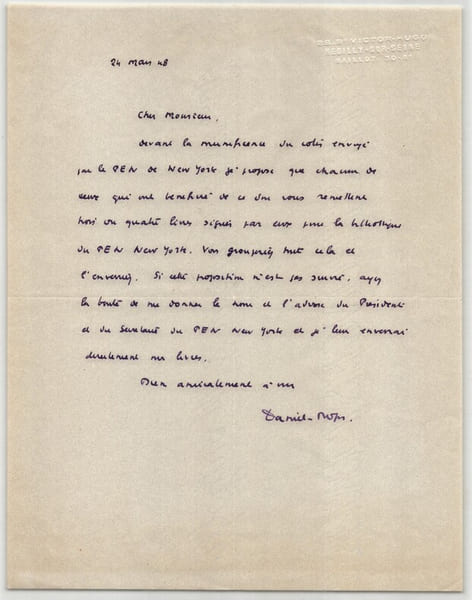 29, Bd VICTOR-HUGO
NEUILLY-SUR-SEINE
MAILLOT
24 Mars 48
Cher Monsieur,
devant la munificence du colis envoyé
par le PEN de New York je propose que chacun de
ceux qui ont bénéficié de ce don vous remettent
trois ou quatre livres signés par eux pour la bibliothèque
du PEN New York. Vous grouperiez tout cela et
l'enverriez. Si cette proposition n'est pas suivie, ayez
la bonté de me donner le nom et l'adresse du Président
et du Secrétaire du PEN New York et je leur enverrai
directement mes livres.
Bien amicalement à vous
Daniel-Rops.